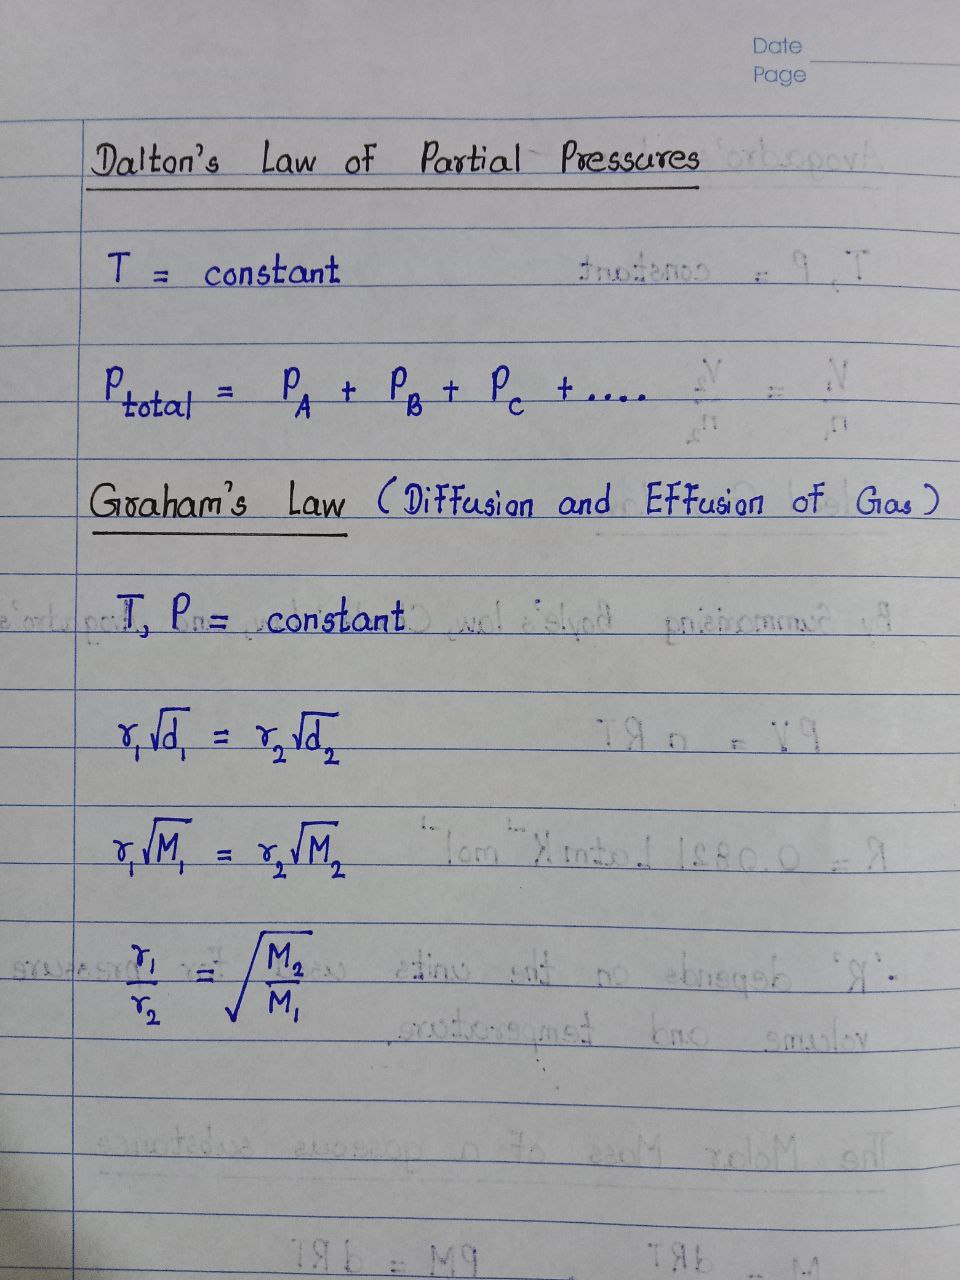 Date
Page
Dalton's Law of Partial Pressures
T = constant
P_total = P_A + P_B + P_C + ....
Graham's Law (Diffusion and Effusion of Gas)
T, P = constant
r₁√d₁ = r₂√d₂
r₁√M₁ = r₂√M₂
r₁/r₂ = √(M₂/M₁)